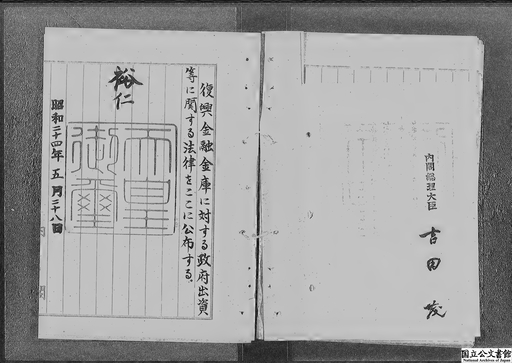 復興金融金庫に対する政府出資
等に関する法律をここに公布する。
裕仁
天皇
御璽
昭和二十四年五月二十八日
内閣総理大臣
吉田茂
国立公文書館
National Archives of Japan